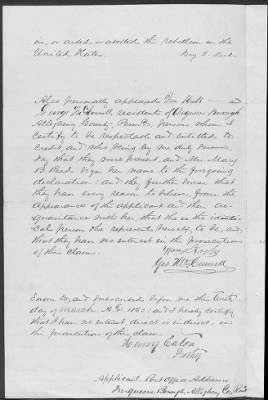 on, or aided or abetted the rebellion in the
United States. Mary B. Reed
Also personally appeared and
George McConnell residents of Borough
Allegheny County, persons whom I
certify to be respectable and entitled to
credit, and who being by me duly sworn,
say that they were present and saw Mary
B. Reed sign her name to the foregoing
declaration; and they further swear that
they have every reason to believe, from the
appearance of the applicant and their ac-
quaintance with her, that she is the identi-
cal person she represents herself to be, and,
that they have no interest in the prosecution
of this claim.
Geo McConnell
Sworn to, and subscribed before me this tenth
day of March A.D. 1863: and I hereby certify
that I have no interest direct or indirect, in
the prosecution of this claim
Henry
Applicant Post Office Address
Borough, Allegheny Co,